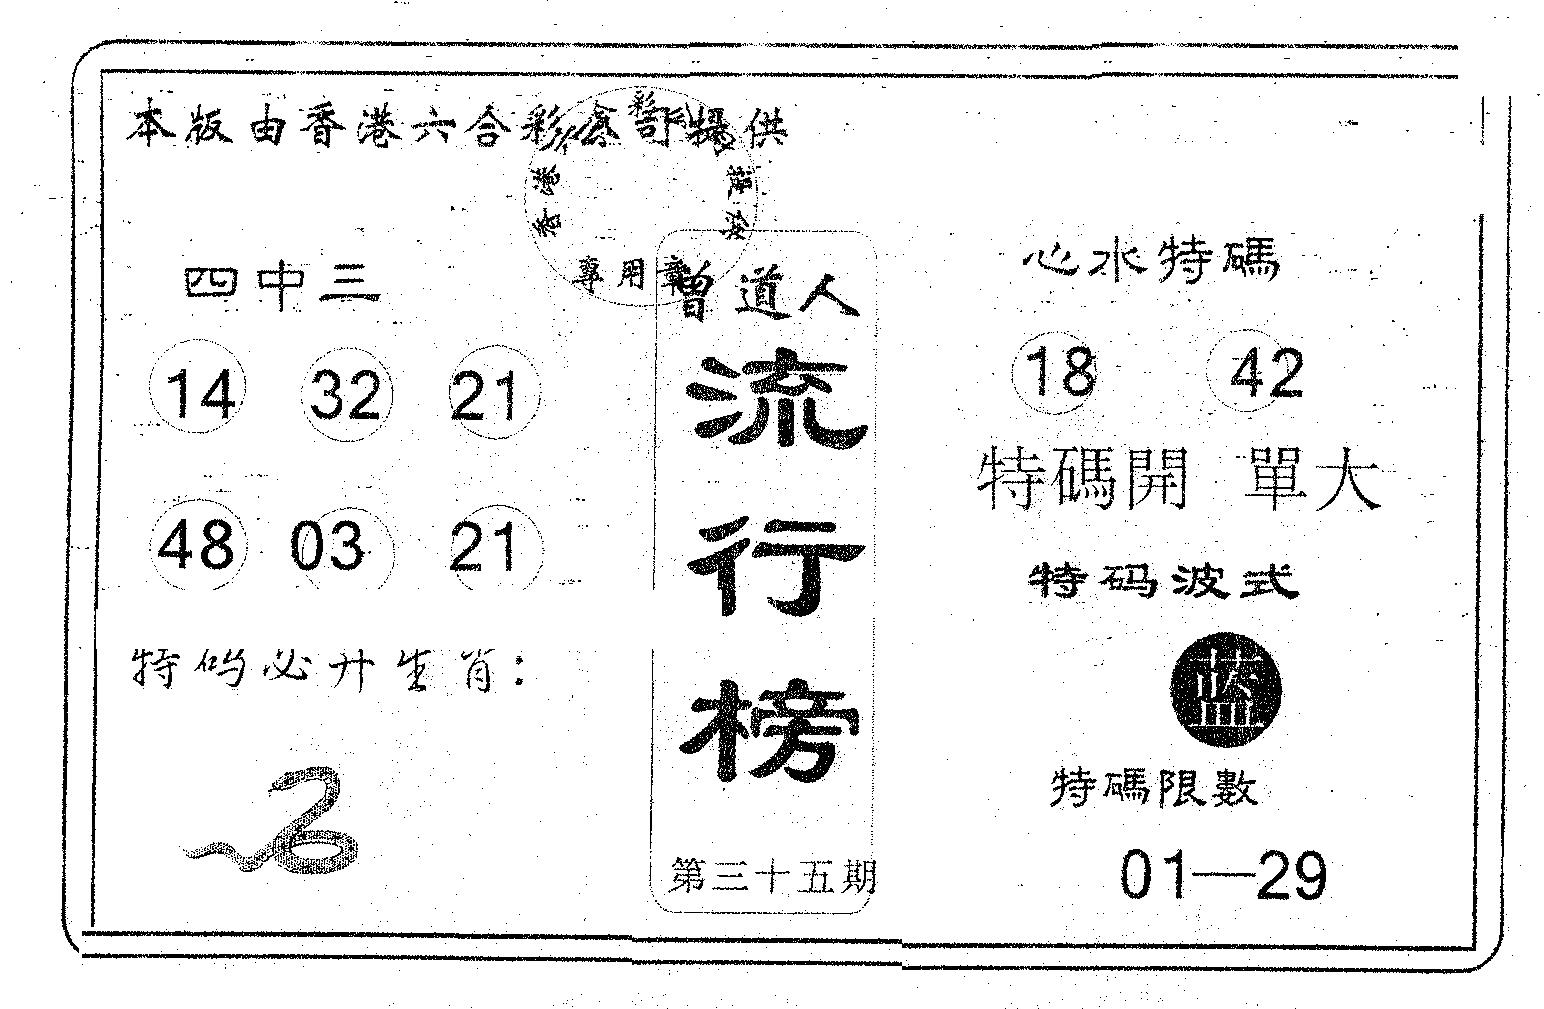 本版由香港六合彩會司提供
香港彩
專用章
四中三
14 32 21
48 03 21
特码必开生肖：
曾道人
流行榜
第三十五期
心水特碼
18 42
特碼開 單大
特码波式
蓝
特碼限數
01—29